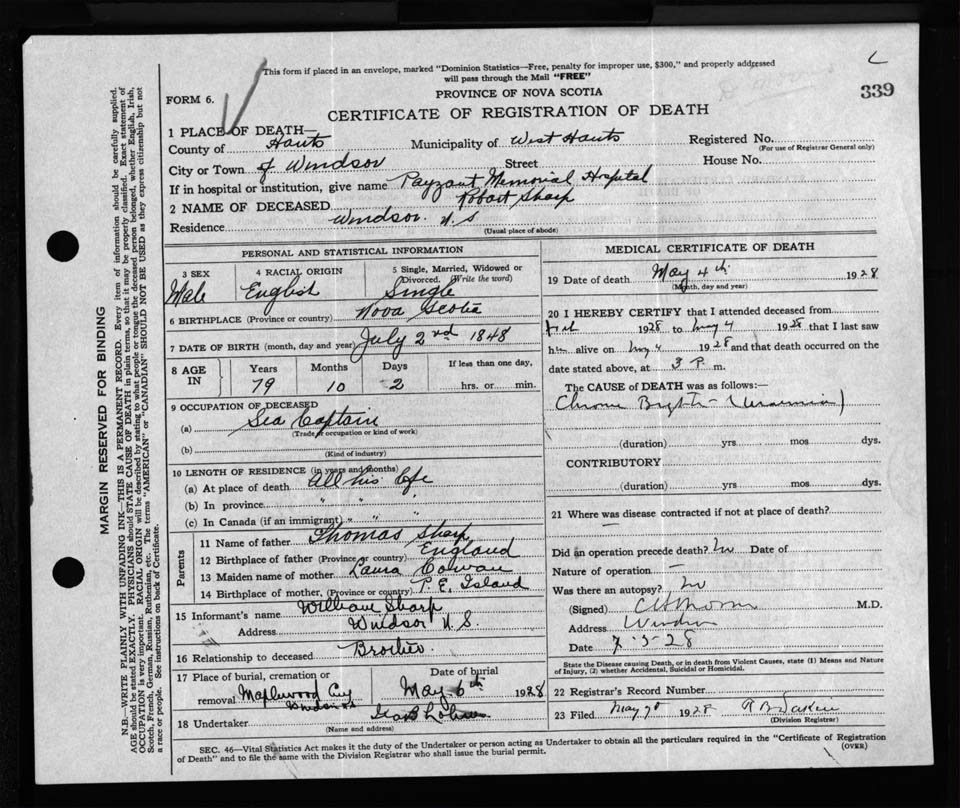 This form if placed in an envelope, marked "Dominion Statistics—Free, penalty for improper use, $300," and properly addressed
will pass through the Mail "FREE"
339
FORM 6.
PROVINCE OF NOVA SCOTIA
CERTIFICATE OF REGISTRATION OF DEATH
1 PLACE OF DEATH—
County of Hants Municipality of West Hants Registered No.
(For use of Registrar General only)
City or Town of Windsor Street House No.
If in hospital or institution, give name Payzant Memorial Hospital
2 NAME OF DECEASED Robert Sharp
Residence Windsor N.S
(Usual place of abode)
MARGIN RESERVED FOR BINDING
N.B.—WRITE PLAINLY WITH UNFADING INK—THIS IS A PERMANENT RECORD. Every item of information should be carefully supplied.
AGE should be stated EXACTLY. PHYSICIANS should STATE CAUSE OF DEATH in plain terms, so that it may be properly classified. Exact statement of
OCCUPATION is very important. RACIAL ORIGIN will be described by stating to what people or tongue the deceased person belonged, whether English, Irish,
Scotch, French, German, Russian, Ruthenian, etc. The terms "AMERICAN" or "CANADIAN" SHOULD NOT BE USED as they express citizenship but not
a race or people. See instructions on back of Certificate.
PERSONAL AND STATISTICAL INFORMATION
3 SEX 4 RACIAL ORIGIN 5 Single, Married, Widowed or
Divorced. (Write the word)
Male English Single
6 BIRTHPLACE (Province or country) Nova Scotia
7 DATE OF BIRTH (month, day and year) July 2nd 1848
8 AGE IN Years Months Days If less than one day,
79 10 2 hrs. or min.
9 OCCUPATION OF DECEASED
(a) Sea Captain
(Trade, occupation or kind of work)
(b)
(Kind of industry)
10 LENGTH OF RESIDENCE (in years and months)
(a) At place of death All his life
(b) In province " " "
(c) In Canada (if an immigrant) " " "
Parents
11 Name of father Thomas Sharp
12 Birthplace of father (Province or country) England
13 Maiden name of mother Laura Cowan
14 Birthplace of mother, (Province or country) P.E. Island
15 Informant's name William Sharp
Address Windsor N.S.
16 Relationship to deceased Brother
17 Place of burial, cremation or Date of burial
removal Maplewood Cey Windsor May 6th 1928
18 Undertaker
(Name and address)
MEDICAL CERTIFICATE OF DEATH
19 Date of death May 4th 1928
(Month, day and year)
20 I HEREBY CERTIFY that I attended deceased from
1928 to May 4 1928 that I last saw
him alive on May 4 1928 and that death occurred on the
date stated above, at 3 P. m.
The CAUSE of DEATH was as follows:—
Chronic Brights - (Uraemia)
(duration) yrs mos dys.
CONTRIBUTORY
(duration) yrs mos dys.
21 Where was disease contracted if not at place of death?
—
Did an operation precede death? No Date of
Nature of operation —
Was there an autopsy? No
(Signed) M.D.
Address Windsor
Date
State the Disease causing Death, or in death from Violent Causes, state (1) Means and Nature
of Injury, (2) whether Accidental, Suicidal or Homicidal.
22 Registrar's Record Number
23 Filed May 7 1928
(Division Registrar)
SEC. 46—Vital Statistics Act makes it the duty of the Undertaker or person acting as Undertaker to obtain all the particulars required in the "Certificate of Registration
of Death" and to file the same with the Division Registrar who shall issue the burial permit. (OVER)